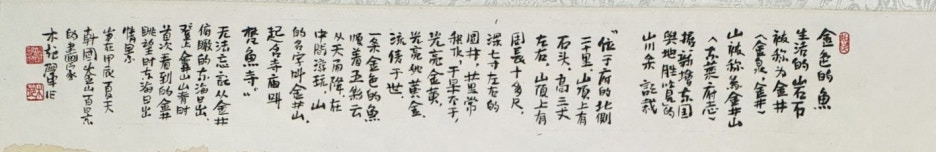 金色的魚
生活的岩石
被称为金井
（金泉，金井）
山被称為金井山
（东萊府志）
據新增东国
與地胜览的
山川条 記載
"位于府的北側
二十里，山頂上有
石头，高三丈
左右，山頂上有
周長十多尺，
深七寸左右的
圆井，井里常
积水，于旱不干，
光亮金黄，
光亮犹黄金，
流傳于世
一条金色的魚
順着五彩云
从天而降，在
中時游玩，山
的名字叫金井山，
起名寺庙叫
梵魚寺。"
无法忘記从金井
俯瞰的东海日出，
登上金井山脊时
首次看到的金井
眺望时东海日出
情景
韓国釜山百景
的畫家